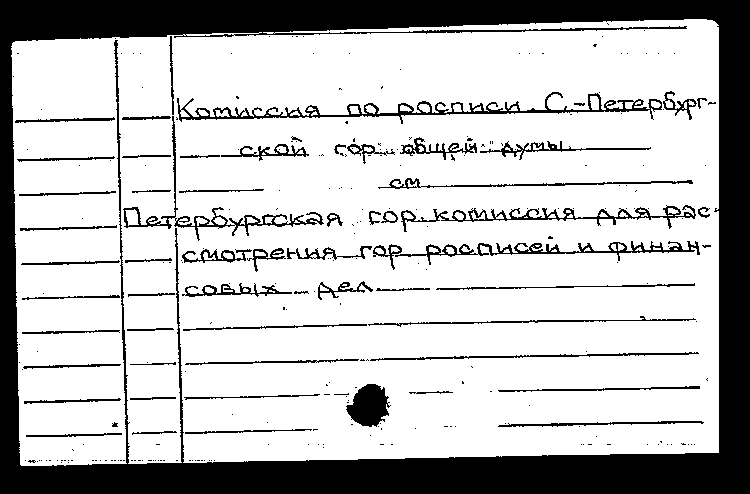 Комиссия по росписи С.-Петербург-
ской гор. общей думы
см.
Петербургская гор. комиссия для рас-
смотрения гор. росписей и финан-
совых дел.